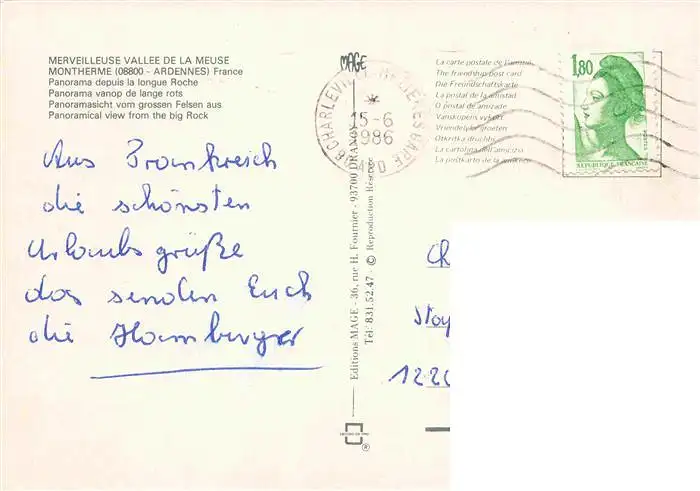 MERVEILLEUSE VALLEE DE LA MEUSE
MONTHERME (08800 - ARDENNES) France
Panorama depuis la longue Roche
Panorama vanop de lange rots
Panoramasicht vom grossen Felsen aus
Panoramical view from the big Rock
Aus Frankreich
die schönsten
Urlaubsgrüße
das senden Euch
die Hamburger
MAGE
15-6
1986
Editions MAGE - 36, rue H. Fournier - 93700 DRANCY
Tél: 831.52.47 - © Reproduction Réservée
La carte postale de l'amitié
The friendship post card
Die Freundschaftskarte
La postal de la amistad
O postal de amizade
Vanskopens vykort
Vriendelijke groeten
Otkritka druzhbi
La cartolina dell'amicizia
1,80
REPUBLIQUE FRANÇAISE
POSTES
Ch
Stoy
1220
®